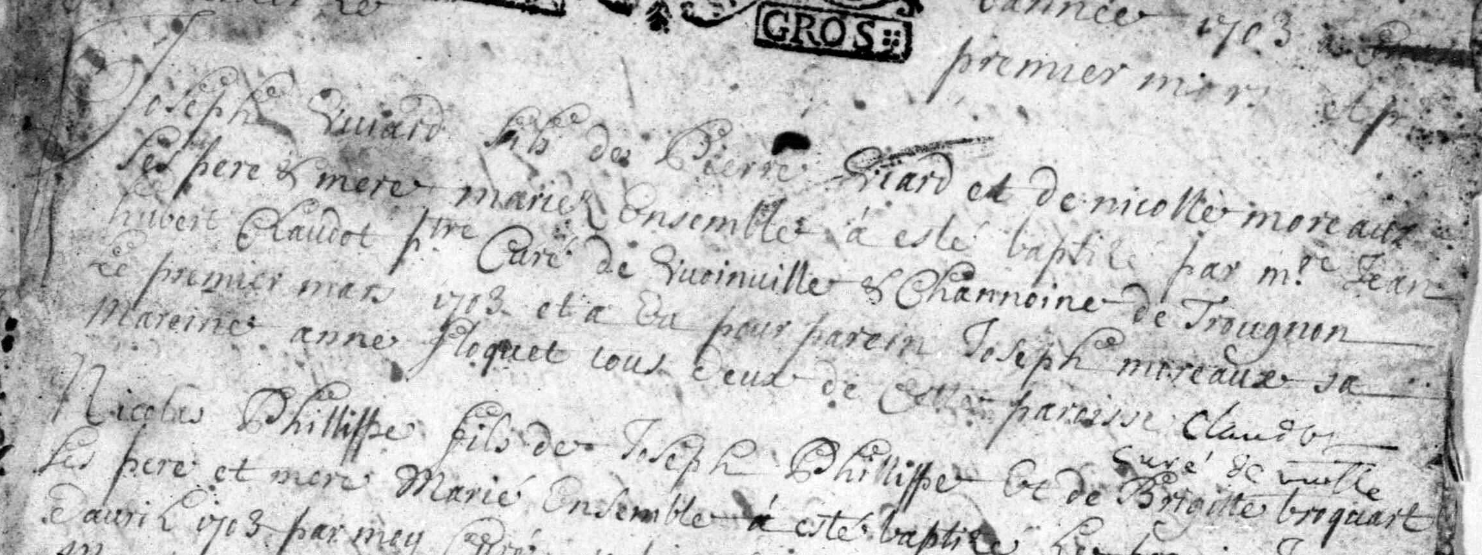 GROS
l'année 1703
premier mars
Joseph Viviard fils de Pierre Viard et de nicolle moreaux
ses pere & mere mariez Ensemble á esté baptizé par m.re Jean
hubert Claudot p.tre Curé de Vuoinville & Channoine de Trougnon
Le premier mars 1703 et a Eu pour parein Joseph moreaux sa
mareine anne floquet tous deux de Cette paroisse Claudot
Curé de
Nicolas Phillippe fils de Joseph Phillippe Et de Brigitte broquart
ses pere et mere Marié Ensemble á esté baptizé
d'auril 1703 par moy Curé